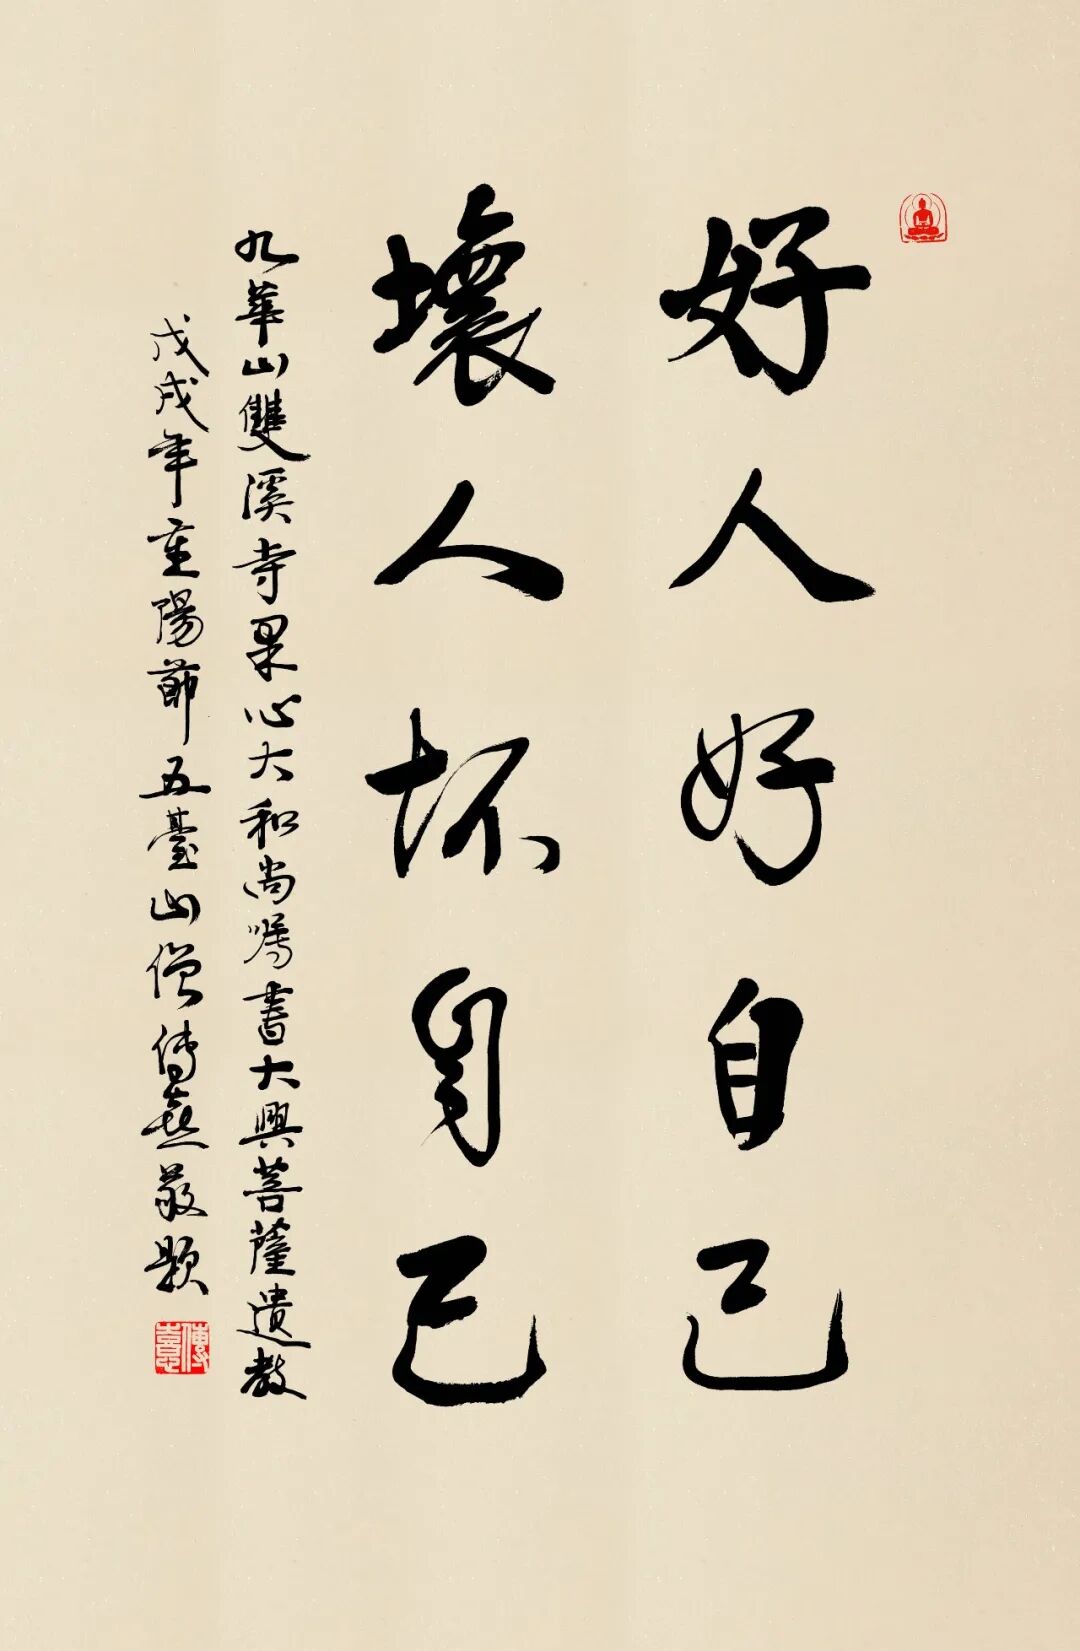 好人好自己
壞人坏自己
九華山雙溪寺果心大和尚嘱書大興菩薩遺教
戊戌年重陽節五臺山僧傳熹敬題
傳熹